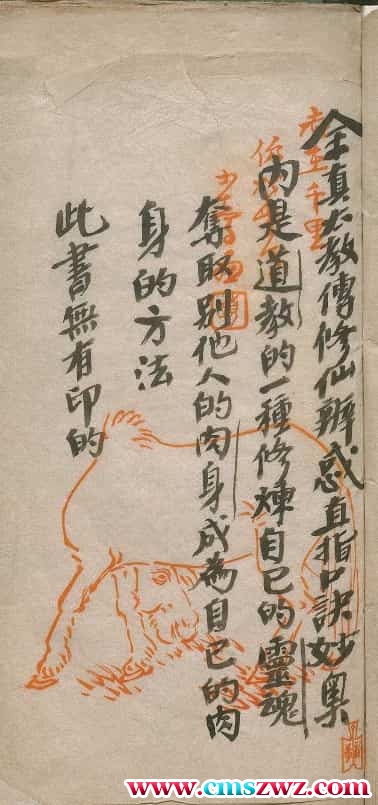 全真大教傳修仙辨惑直指口訣妙奧
内是道教的一種修煉自己的靈魂
奪取别他人的肉身成為自己的肉
身的方法
此書無有印的
千里
www.cmszwz.com